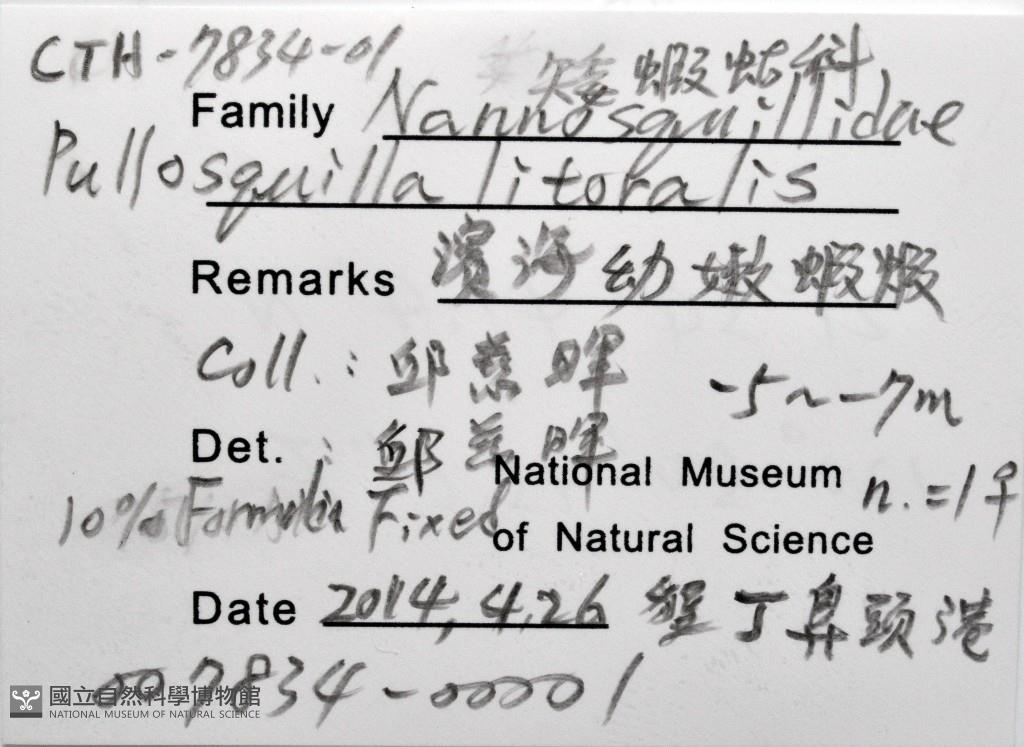 CTH-7834-01 矮蝦蛄科
Family Nannosquillidae
Pullosquilla litoralis
Remarks 濱海幼嫩蝦
Coll.: 邱慈暉 -5~-7m
Det.: 邱慈暉
National Museum n.=1♀
10% Formalin Fixed
of Natural Science
Date 2014,4.26 墾丁鼻頭港
007834-00001
國立自然科學博物館
NATIONAL MUSEUM OF NATURAL SCIENCE